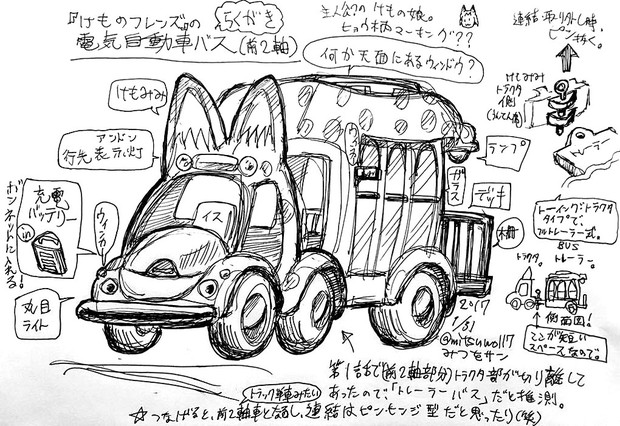 『けものフレンズ』の らくがき
電気自動車バス(前2軸)
主人公?のけもの娘。
ヒョウ柄マーキング??
何か天面にあるウィンドウ?
連結・取りクトし時、
ピンをぬく。
けもみみ
トラクタ
側
トレーラー
けもみみ
アンドン
行先表示灯
ボンネットに入れる!
充電
バッテリー
in
ウィンカー
丸目
ライト
イス
ガラス
ランプ
デッキ
柵
トーイング・トラクタ
タイプで、
フルトレーラー式。
BUS
トラクタ。トレーラー。
側面図!
ここが短い
スペースなので。
2017
1/31
@mitsuwo117
みつをサン
第1話で(前2軸部分)トラクタ部が切り離して
あったので、「トレーラーバス」だと推測。
トラック車みたい
☆つなげると、前2軸車となるし、連結はピンモンジ型だと思ったり(笑)